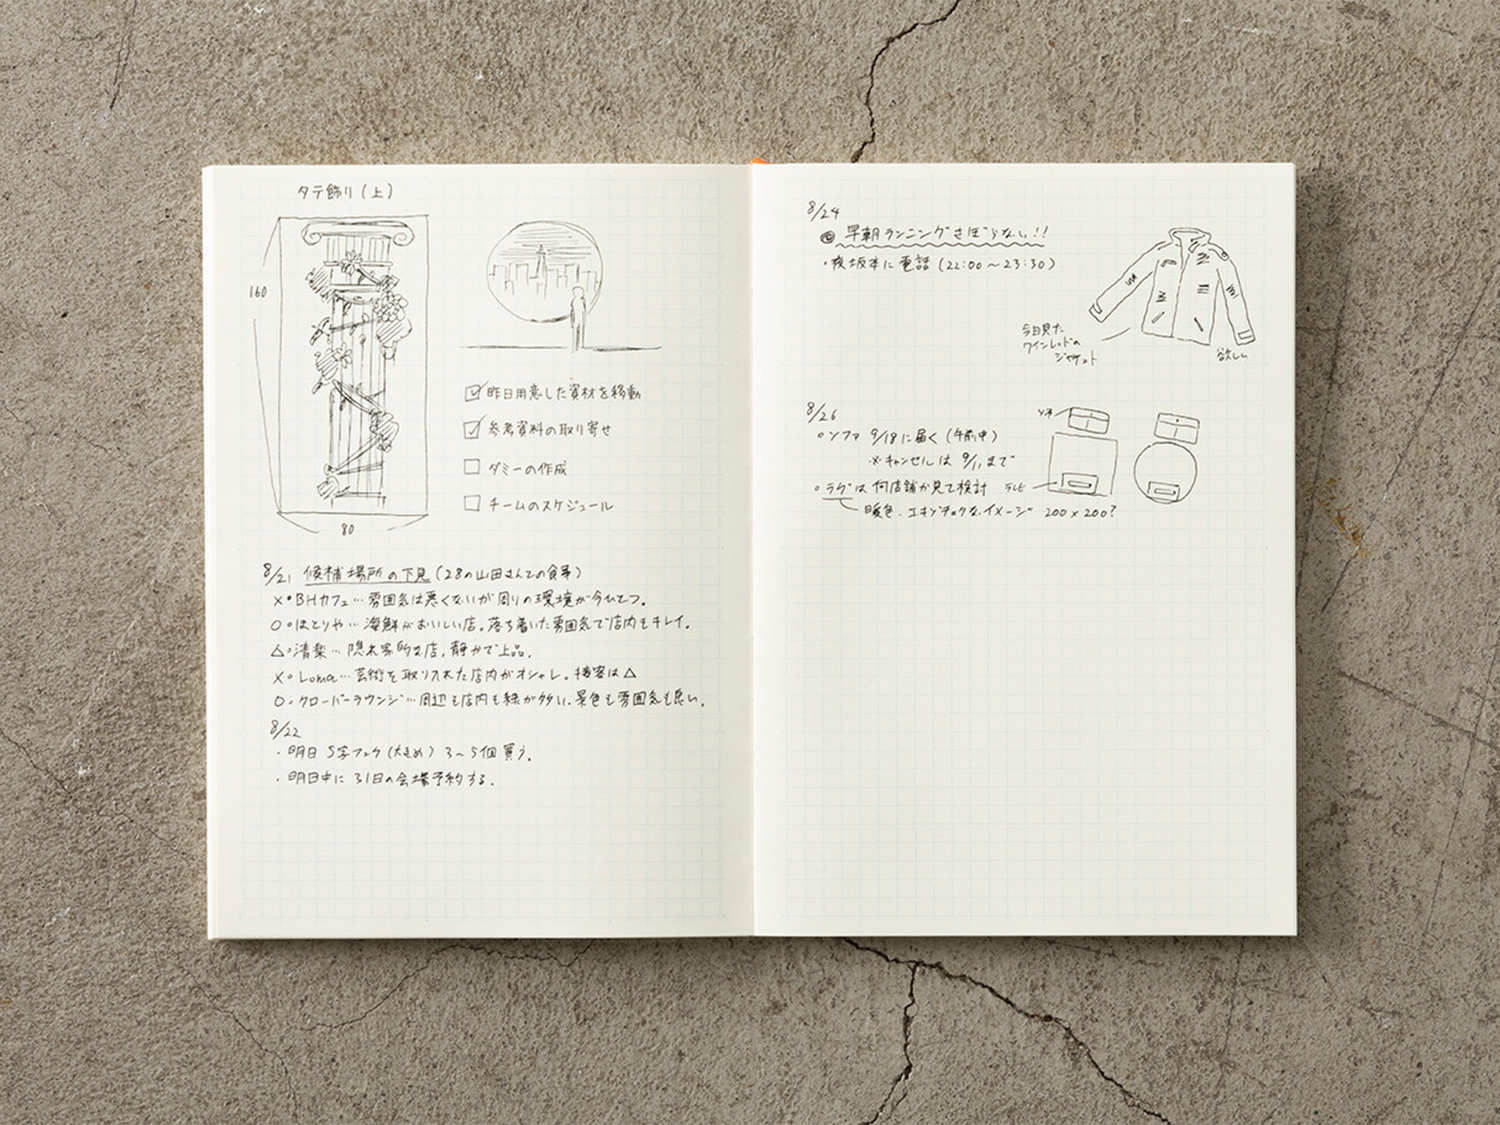 タテ飾り(上)
160
80
☑昨日用意した資材を移動
☑参考資料の取り寄せ
☐ダミーの作成
☐チームのスケジュール
8/21 候補場所の下見(28の山田さんとの食事)
×・BHカフェ…雰囲気は悪くないが周りの環境が今ひとつ。
○・はとりや…海鮮がおいしい店。落ち着いた雰囲気で店内もキレイ。
△・清楽…隠れ家的な店。静かで上品。
×・Loma…芸術を取り入れた店内がオシャレ。接客は△
○・クローバーラウンジ…周辺も店内も緑が多い。景色も雰囲気も良い。
8/22
・明日 S字フック(大きめ) 3〜5個買う。
・明日中に 31日の会場予約する。
8/24
早朝ランニングさぼらない!!
・夜坂本に電話(22:00〜23:30)
今日見た
ワインレッドの
ジャケット
欲しい
8/26
○ソファ 9/18に届く(午前中)
※キャンセルは 9/11まで
○ラグは何店舗か見て検討
暖色、エキゾチックなイメージ 200×200?
ソファ
テレビ